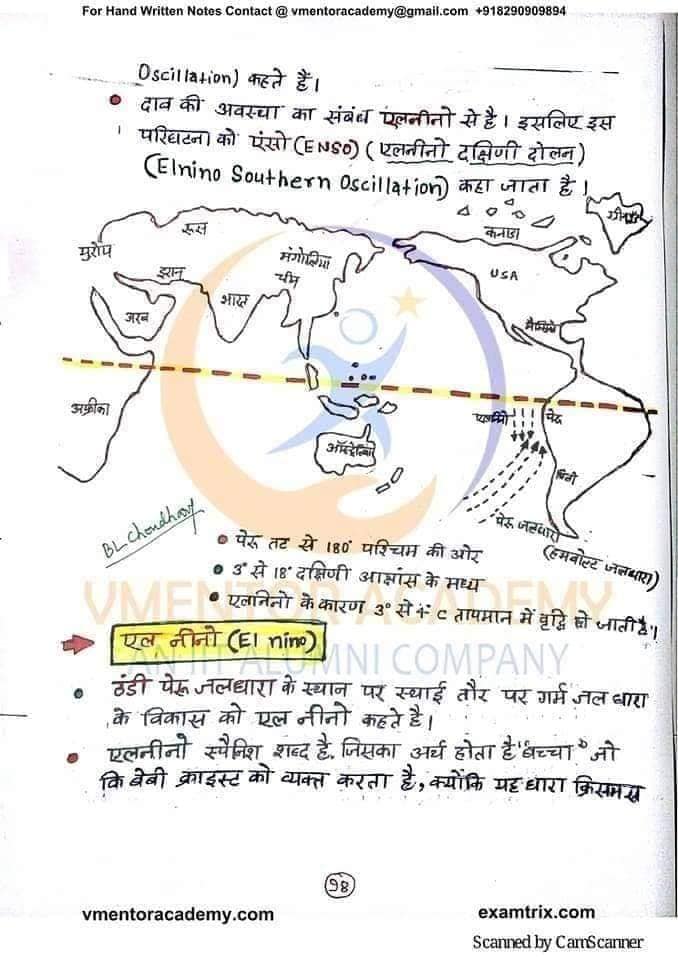 For Hand Written Notes Contact @ vmentoracademy@gmail.com +918290909894
Oscillation) कहते हैं।
• दाव की अवस्था का संबंध एलनीनो से है। इसलिए इस
परिघटना को एंसो (ENSO) (एलनीनो दक्षिणी दोलन)
(Elnino Southern Oscillation) कहा जाता है।
कनाडा
रूस
युरोप
मंगोलिया
चीन
USA
ईरान
भारत
अरब
मैक्सिको
अफ्रीका
एलनिनो
पेरू
ऑस्ट्रेलिया
चिली
पेरू जलधारा
(हमबोल्ट जलधारा)
BL Choudhary
• पेरू तट से 180° पश्चिम की ओर
• 3° से 18° दक्षिणी आक्षांस के मध्य
• एलनिनो के कारण 3° से 4° C तापमान में वृद्धि हो जाती है।
VMENTOR ACADEMY
AN IIT ALUMNI COMPANY
एल नीनो (El nino)
• ठंडी पेरू जलधारा के स्थान पर स्थाई तौर पर गर्म जल धारा
के विकास को एल नीनो कहते है।
• एलनीनो स्पैनिश शब्द है, जिसका अर्थ होता है "बच्चा" जो
कि बेबी क्राइस्ट को व्यक्त करता है, क्योंकि यह धारा क्रिसमस
98
vmentoracademy.com
examtrix.com
Scanned by CamScanner